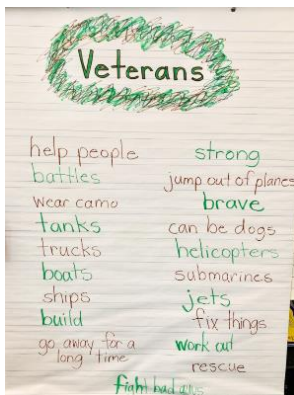 Veterans
help people
battles
wear camo
tanks
trucks
boats
ships
build
go away for a
long time
strong
jump out of planes
brave
can be dogs
helicopters
submarines
jets
fix things
work out
rescue
fight bad